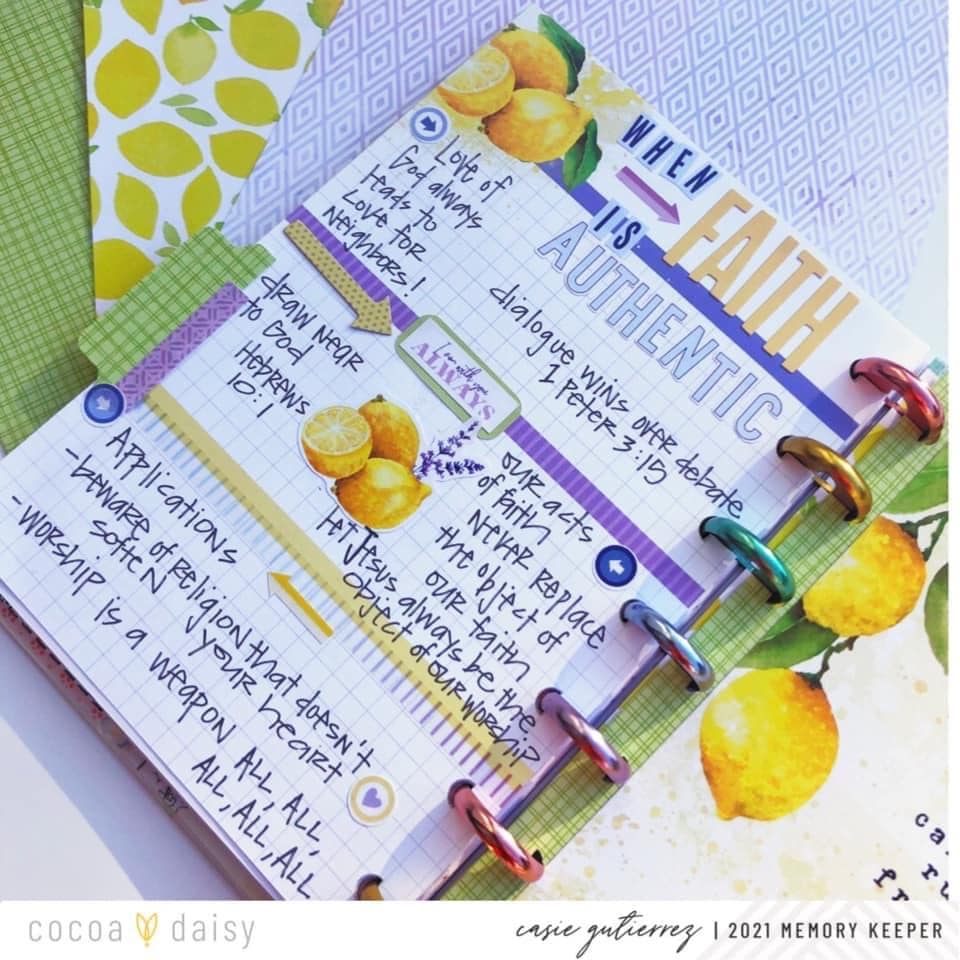 WHEN
FAITH
IS
AUTHENTIC
Love of
God always
leads to
Love for
Neighbors!
dialogue wins over debate
1 Peter 3:15
draw near
to God
Hebrews
10:1
I am with you
ALWAYS
our acts
of faith
Never replace
the object of
our faith
let Jesus always be the
object of our worship
Applications
-beware of religion that doesn't
soften your heart
-worship is a weapon ALL, ALL,
ALL, ALL, ALL
ca
ru
fr
cocoa daisy
casie gutierrez | 2021 MEMORY KEEPER